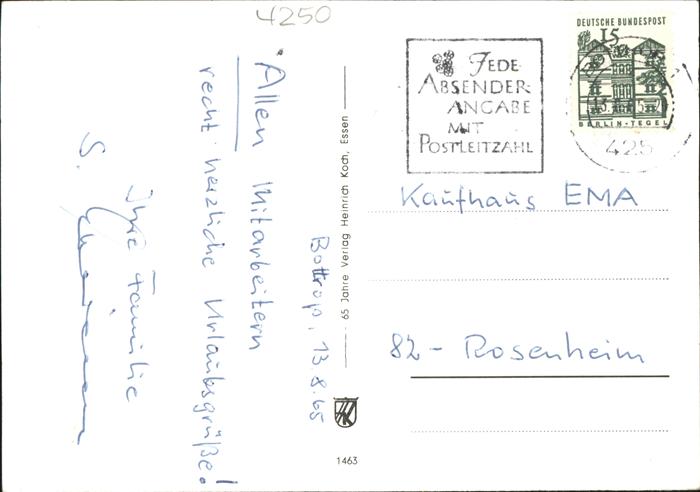 4250
Bottrop, 13.8.65
Allen Mitarbeitern
recht herzliche Urlaubsgrüße!
Ihre Familie
S.
65 Jahre Verlag Heinrich Koch, Essen
1463
JEDE
ABSENDER-
ANGABE
MIT
POSTLEITZAHL
DEUTSCHE BUNDESPOST
15
BERLIN-TEGEL
425
Kaufhaus EMA
82 - Rosenheim